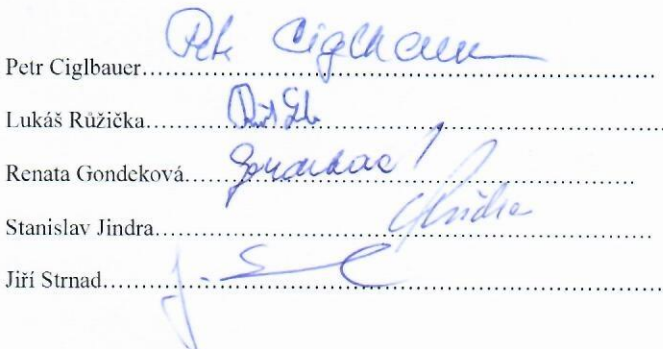 Petr Ciglbauer.......... Petr Ciglbauer
Lukáš Růžička..........
Renata Gondeková..........
Stanislav Jindra.......... Jindra
Jiří Strnad..........